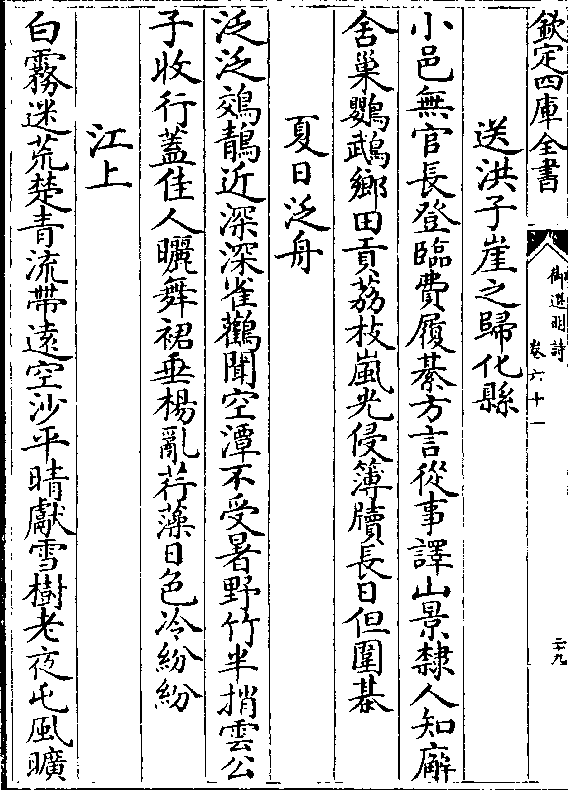 欽定四庫全書
御選明詩
卷六十一
二十九
送洪子崖之歸化縣
小邑無官長登臨費履綦方言從事譯山景隸人知廨
舍巢鸚鵡鄉田貢荔枝嵐光侵簿牘長日但圍棊
夏日泛舟
泛泛鵁鶄近深深雀鸛聞空潭不受暑野竹半捎雲公
子收行蓋佳人曬舞裙垂楊亂荇藻日色冷紛紛
江上
白霧迷荒楚青流帶遠空沙平晴獻雪樹老夜屯風曠